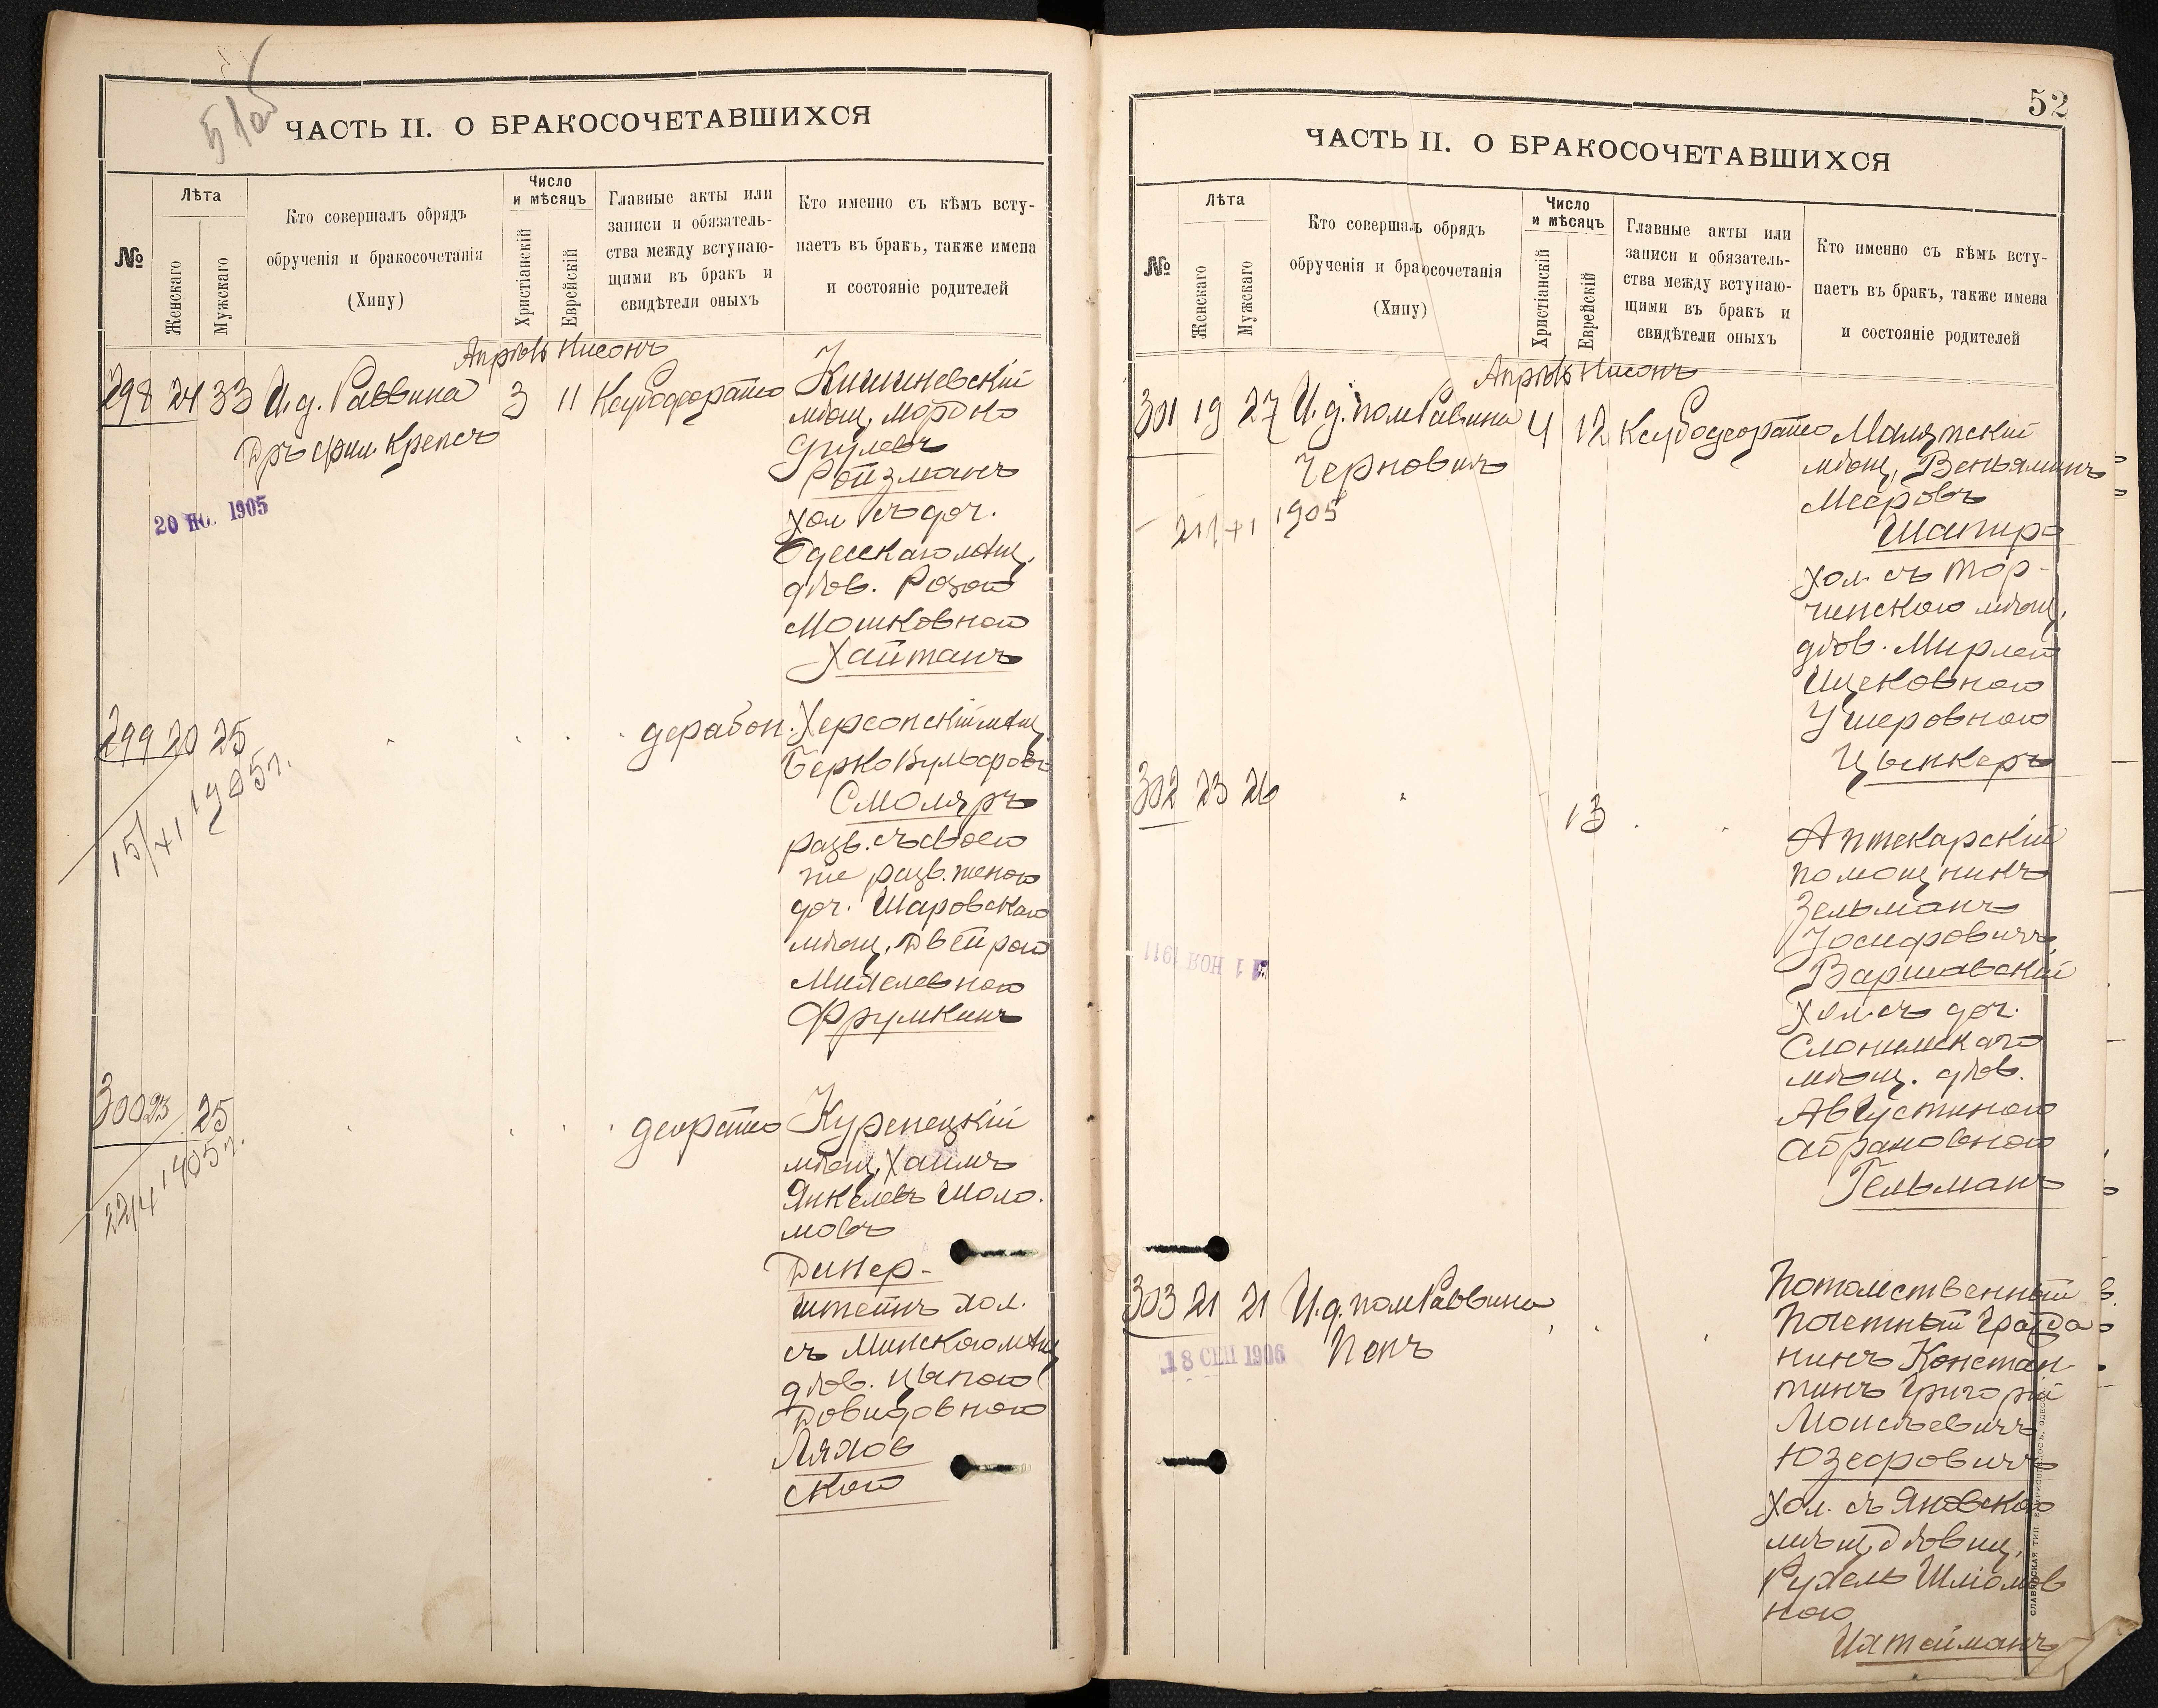 ЧАСТЬ II. О БРАКОСОЧЕТАВШИХСЯ
№
Лѣта
Женскаго
Мужскаго
Кто совершалъ обрядъ
обрученія и бракосочетанія
(Хипу)
Число
и мѣсяцъ
Христіанскій
Еврейскій
Главные акты или
записи и обязатель-
ства между вступаю-
щими въ бракъ и
свидѣтели оныхъ
Кто именно съ кѣмъ всту-
паетъ въ бракъ, также имена
и состояніе родителей
Апрѣль Нисонъ
298 24 33 И.д. Раввина 3 11
Кишиневскій
мѣщ. Мордко
Сруlевъ
Ройзманъ
хол. съ доч.
Одесскаго мѣщ.
дѣв. Розою
Мошковною
Хайтанъ
20 НО. 1905
299 20 25
Херсонскій мѣщ.
Берко Вульфовъ
Смоляръ
разв. съ своею
же разв. женою
доч. Шаровскаго
мѣщ. Двейрою
Михелевною
Фрумкинъ
15/XI 1905г.
300 23 25
Куренецкій
мѣщ. Хаимъ
Янкелевъ Шоло-
мовъ
Динер-
штейнъ хол.
съ Минскою мѣщ.
дѣв. Цыпою
Довидовною
Ляхов
скою
1905г.
52
ЧАСТЬ II. О БРАКОСОЧЕТАВШИХСЯ
№
Лѣта
Женскаго
Мужскаго
Кто совершалъ обрядъ
обрученія и бракосочетанія
(Хипу)
Число
и мѣсяцъ
Христіанскій
Еврейскій
Главные акты или
записи и обязатель-
ства между вступаю-
щими въ бракъ и
свидѣтели оныхъ
Кто именно съ кѣмъ всту-
паетъ въ бракъ, также имена
и состояніе родителей
Апрѣль Нисонъ
301 19 27 И.д. пом. Раввина 4 12
Черновичъ
мѣщ. Веньяминъ
Мееровъ
Шапиро
хол. съ Тор-
чинскою мѣщ.
дѣв. Мирлею
Ицековною
Ушеровною
Цынкеръ
1905
302 23 26 13
Аптекарскій
помощникъ
Зельманъ
Іосифовичъ
Варшавскій
хол. съ доч.
Слонимскаго
мѣщ. дѣв.
Августиною
Абрамовною
Гельманъ
1 НОЯ 1911
303 21 21 И.д. пом. Раввина
Пенъ
18 СЕП 1906
Потомственный
Почетный Гражда
нинъ Констан-
тинъ Григорій
Моисѣевичъ
Юзефовичъ
хол. съ Яновскою
мѣщ. дѣвиц.
Рухель Шліомов
ною
Ихтейманъ